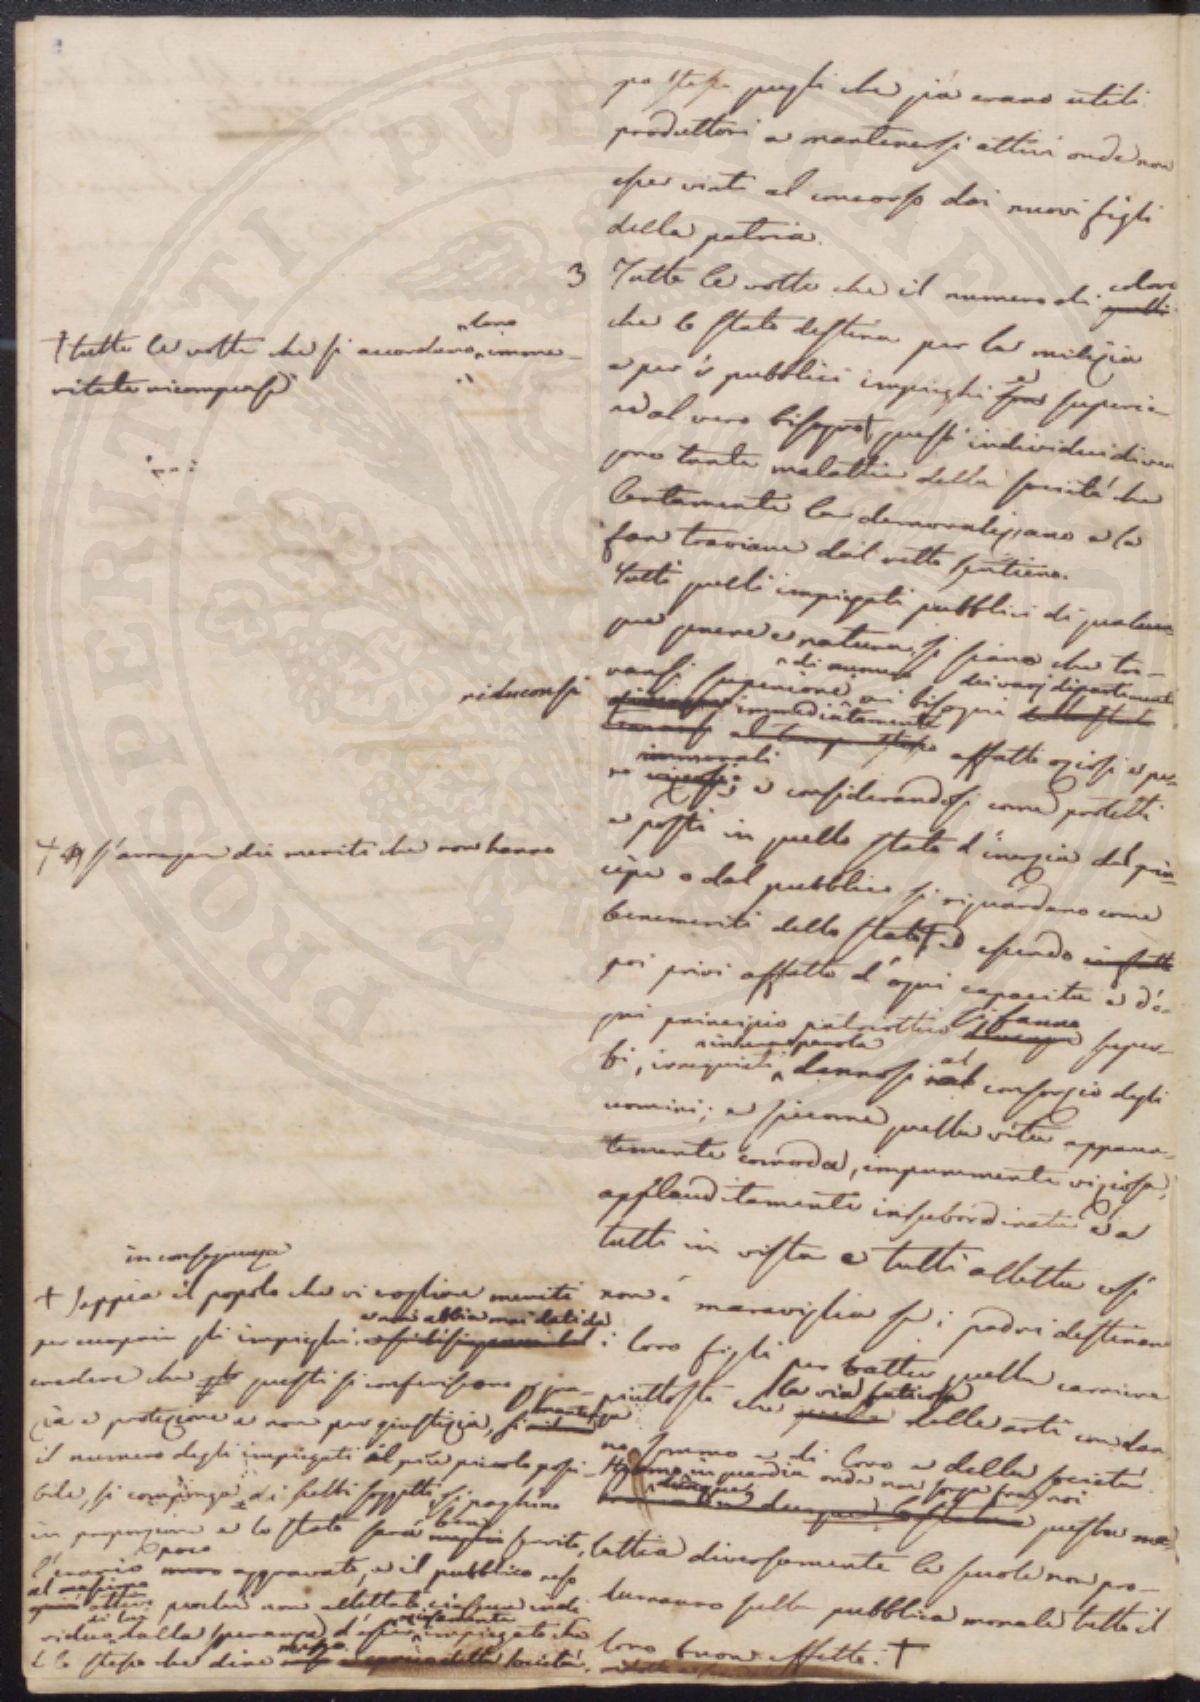 po stesso quegli che già erano utili
produttori a mantenersi attivi onde non
esser vinti al concorso dai nuovi figli
della patria.
3 Tutte le volte che il numero di coloro
che lo stato destina per la milizia
e per i pubblici impieghi è superio-
re al vero bisogno † questi individui diven
gono tante malattie della società che
lentamente la demoralizzano e la
fan traviare dal retto sentiero.
Tutti quelli impiegati pubblici di qualun
que genere e natura si siano che tro-
vansi superiore di numero ai bisogni dei varj dipartimenti
riduconsi immediatamente affatto oziosi e per-
immorali
e considerandosi come protetti
e posti in quello stato d'inerzia dal prin-
cipe o dal pubblico si riguardano come
benemeriti dello stato † ed essendo
poi privi affatto d'ogni capacità e d'o-
gni principio patriottico si fanno super-
bi, inquieti, in una parola dannosi al consorzio degli
uomini; e siccome quella vita apparen-
temente comoda, impunemente viziosa,
applauditamente insubordinata è a
tutti in vista e tutti alletta così
non è maraviglia se i padri destinano
i loro figli per batter quella carriera
piuttosto che la via faticosa delle arti con dan
no sommo e di loro e della società.
Stiamo in guardia dunque onde non sorga fra noi
questa ma
lattia diversamente le scuole non pro-
durranno sulla pubblica morale tutto il
loro buon effetto. †
† tutte le volte che si accordano loro imme-
ritate ricompense
† s'arrogan dei meriti che non hanno
in conseguenza
† Sappia il popolo che vi vogliono meriti
per occupare gli impieghi, e non abbia mai dati da
credere che questi si conferiscono per gra-
zia e protezione e non per giustizia, si mantenga
il numero degli impiegati il più piccolo possi-
bile, si componga di scelti soggetti, si paghino
in proporzione e lo stato sarà ben servito,
l'erario poco aggravato, e il pubblico reso
al massimo attivo perché non allettato ciascun indi
viduo dalla speranza di esser impiegato che
è lo stesso che dire